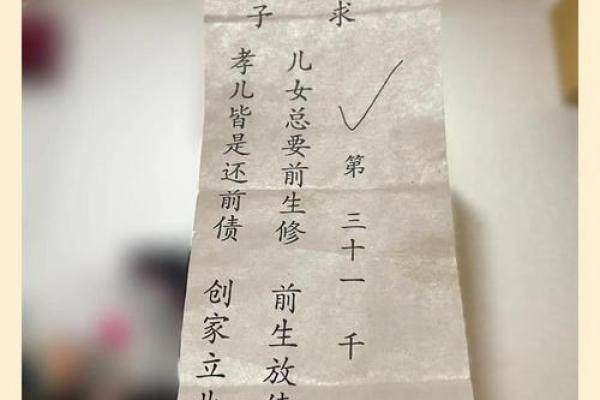 求子
第三十一 千
儿女总要前生修 前生放
孝儿皆是还前债 创家立